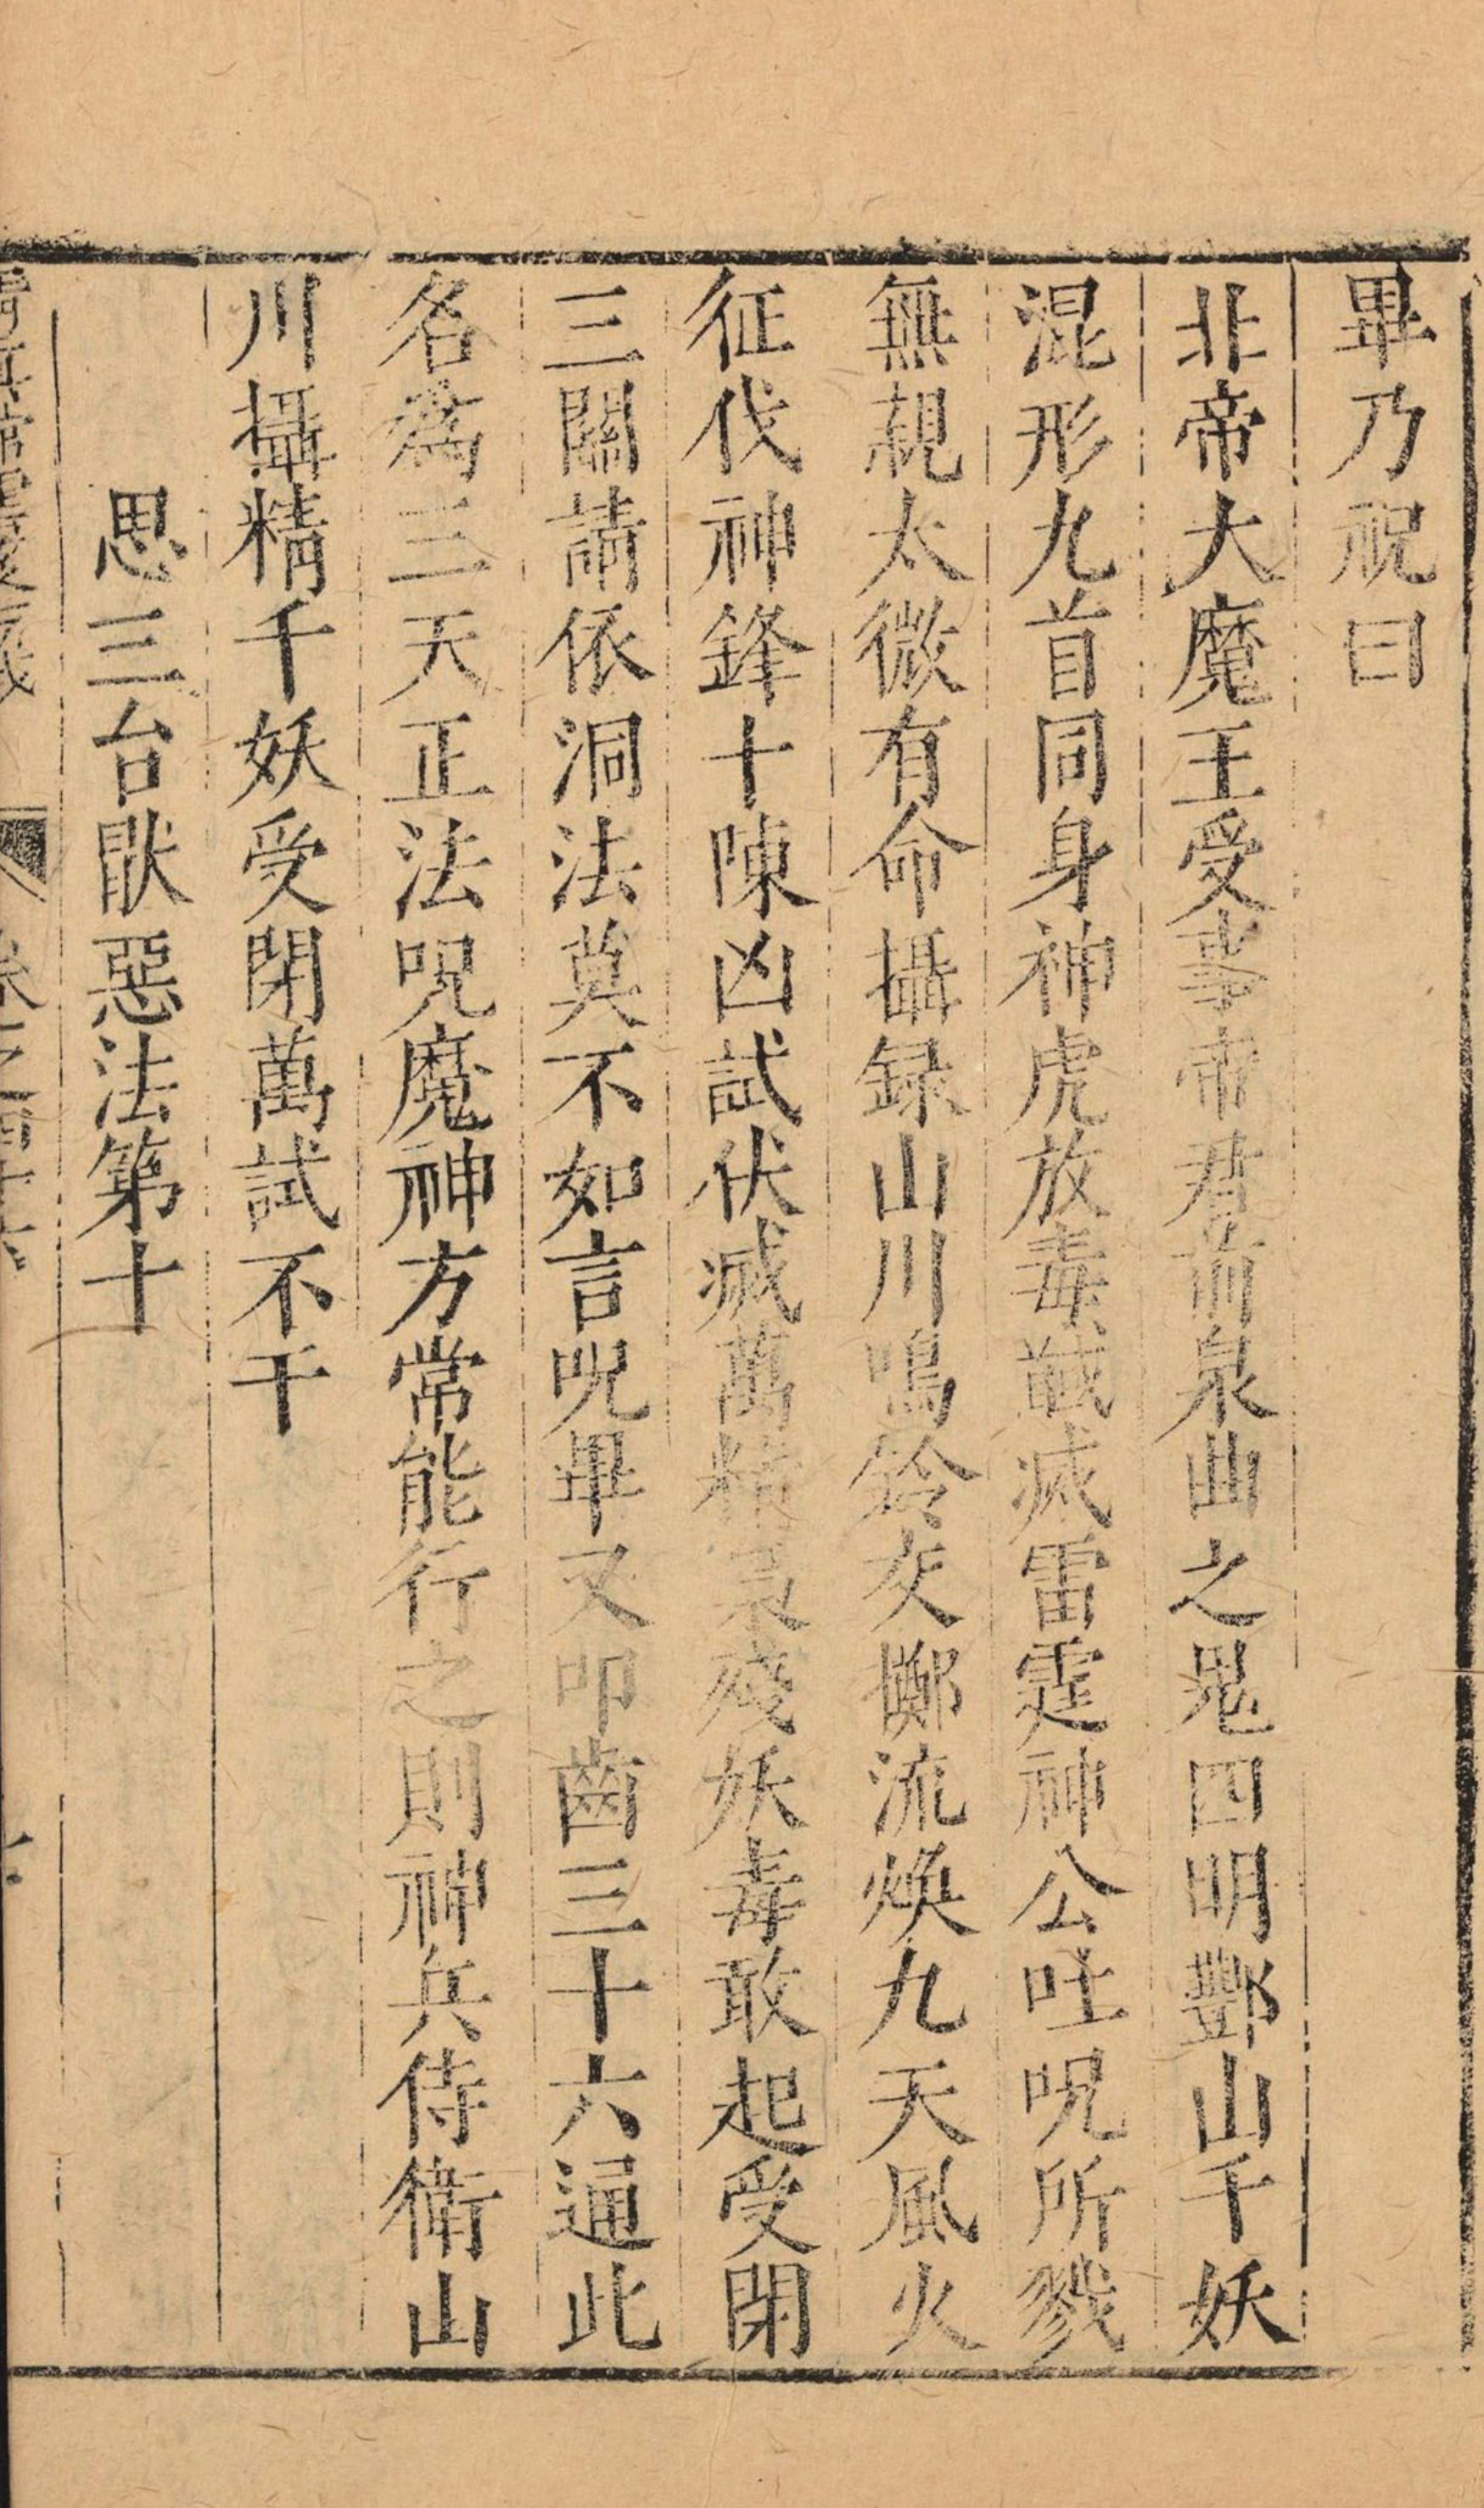 畢乃祝曰
北帝大魔王受事帝君前泉曲之鬼四明酆山千妖
混形九首同身神虎放毒馘滅雷霆神公吐呪所戮
無親太微有命攝録山川鳴鈴交擲流煥九天風火
征伐神鋒十陳凶試伏滅萬精泉殘妖毒敢起受閉
三關請依洞法莫不如言呪畢又叩齒三十六通此
名爲三天正法呪魔神方常能行之則神兵侍衛山
川攝精千妖受閉萬試不干
思三台猒惡法第十